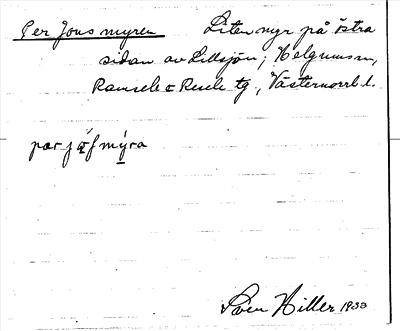 Per Jons myren Liten myr på östra
sidan av Lillsjön; Helgumsm,
Ramsele & Resele tg., Västernorrl. l.
pær jɷf my̱ra
Sven Hiller 1933